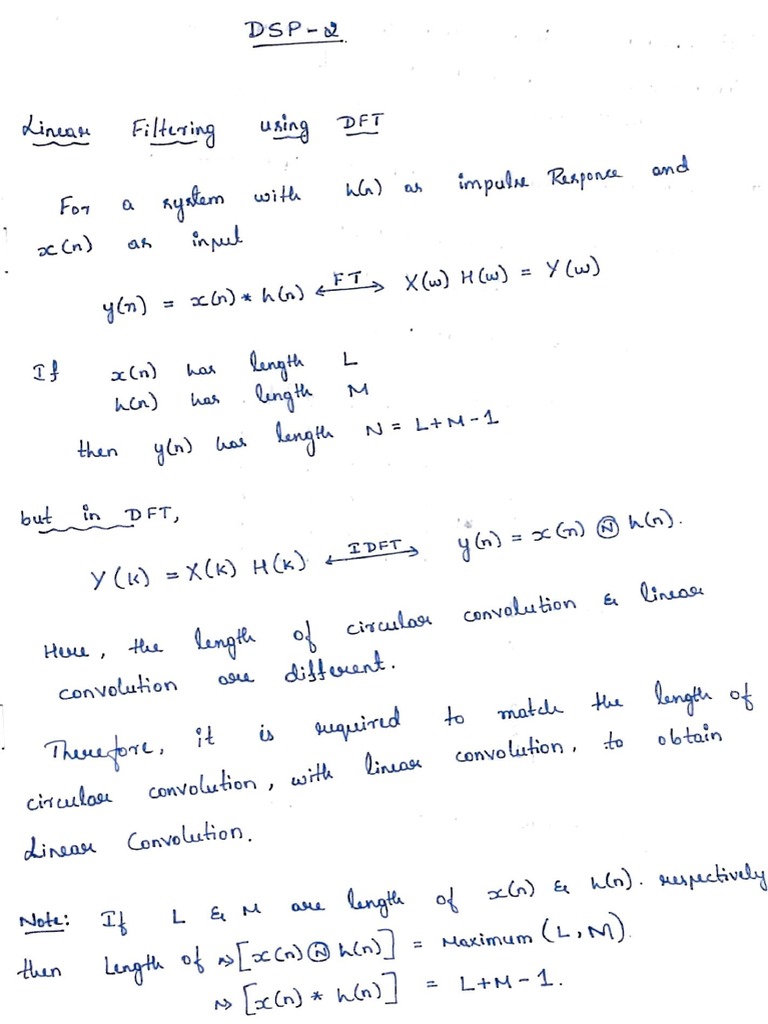 DSP-2
Linear Filtering using DFT
For a system with h(n) as impulse Responce and
x(n) as input
y(n) = x(n) * h(n) <--FT--> X(w) H(w) = Y(w)
If x(n) has length L
h(n) has length M
then y(n) has length N = L+M-1
but in DFT,
Y(k) = X(k) H(k) <--IDFT--> y(n) = x(n) Ⓝ h(n).
Here, the length of circular convolution & linear
convolution are different.
Therefore, it is required to match the length of
circular convolution, with linear convolution, to obtain
Linear Convolution.
Note: If L & M are length of x(n) & h(n). respectively
then Length of ⇝ [x(n) Ⓝ h(n)] = Maximum (L, M).
⇝ [x(n) * h(n)] = L+M-1.